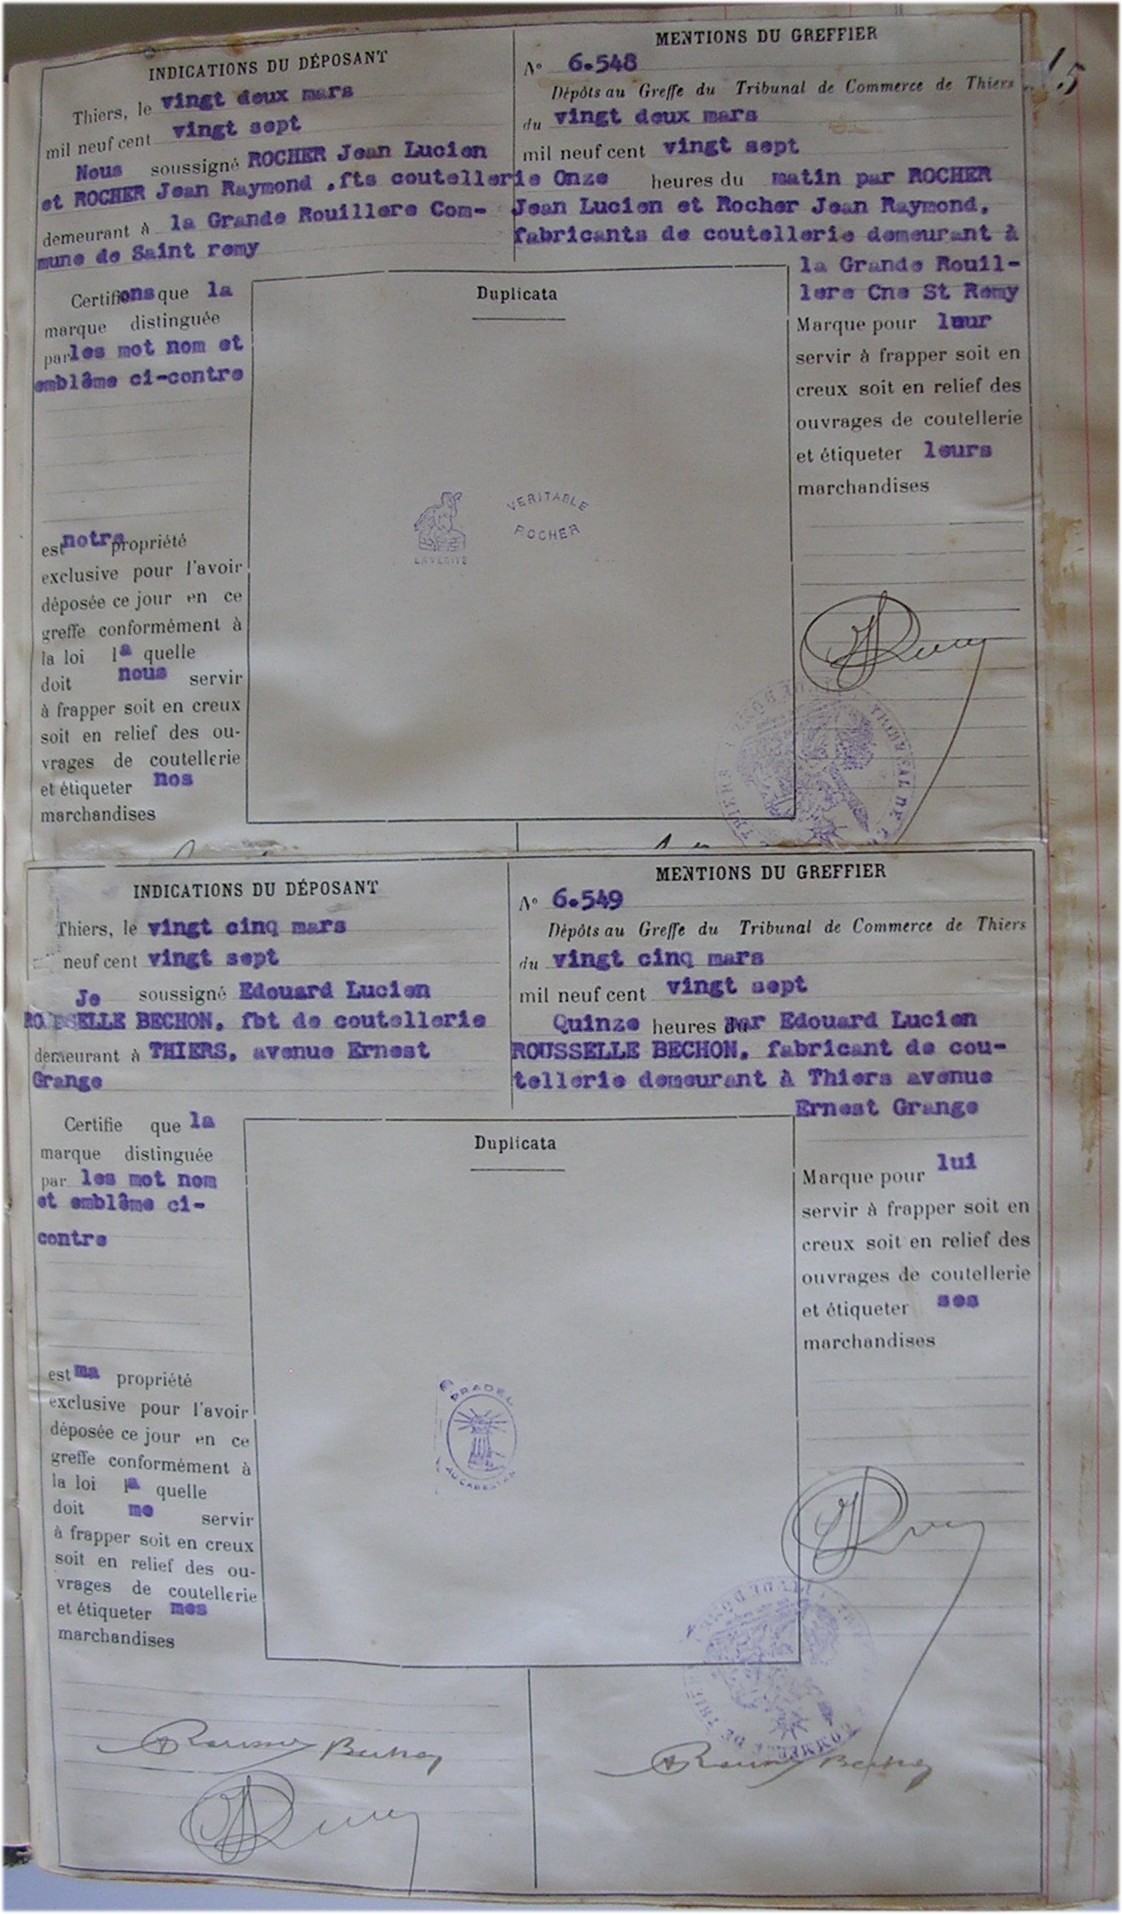 INDICATIONS DU DÉPOSANT
Thiers, le vingt deux mars
mil neuf cent vingt sept
Nous soussigné ROCHER Jean Lucien
et ROCHER Jean Raymond , fts coutellerie
demeurant à la Grande Rouillere Com-
mune de Saint remy
Certifions que la
marque distinguée
par les mot nom et
emblême ci-contre
est notre propriété
exclusive pour l'avoir
déposée ce jour en ce
greffe conformément à
la loi la quelle
doit nous servir
à frapper soit en creux
soit en relief des ou-
vrages de coutellerie
et étiqueter nos
marchandises
Duplicata
LA VERITE
VERITABLE
ROCHER
MENTIONS DU GREFFIER
N° 6.548
Dépôts au Greffe du Tribunal de Commerce de Thiers
du vingt deux mars
mil neuf cent vingt sept
Onze heures du matin par ROCHER
Jean Lucien et Rocher Jean Raymond,
fabricants de coutellerie demeurant à
la Grande Rouil-
lere Cne St Remy
Marque pour leur
servir à frapper soit en
creux soit en relief des
ouvrages de coutellerie
et étiqueter leurs
marchandises
INDICATIONS DU DÉPOSANT
Thiers, le vingt cinq mars
neuf cent vingt sept
Je soussigné Edouard Lucien
ROUSSELLE BECHON, fbt de coutellerie
demeurant à THIERS, avenue Ernest
Grange
Certifie que la
marque distinguée
par les mot nom
et emblême ci-
contre
est ma propriété
exclusive pour l'avoir
déposée ce jour en ce
greffe conformément à
la loi la quelle
doit me servir
à frapper soit en creux
soit en relief des ou-
vrages de coutellerie
et étiqueter mes
marchandises
Duplicata
PRADEL
AU CABESTAN
MENTIONS DU GREFFIER
N° 6.549
Dépôts au Greffe du Tribunal de Commerce de Thiers
du vingt cinq mars
mil neuf cent vingt sept
Quinze heures par Edouard Lucien
ROUSSELLE BECHON, fabricant de cou-
tellerie demeurant à Thiers avenue
Ernest Grange
Marque pour lui
servir à frapper soit en
creux soit en relief des
ouvrages de coutellerie
et étiqueter ses
marchandises